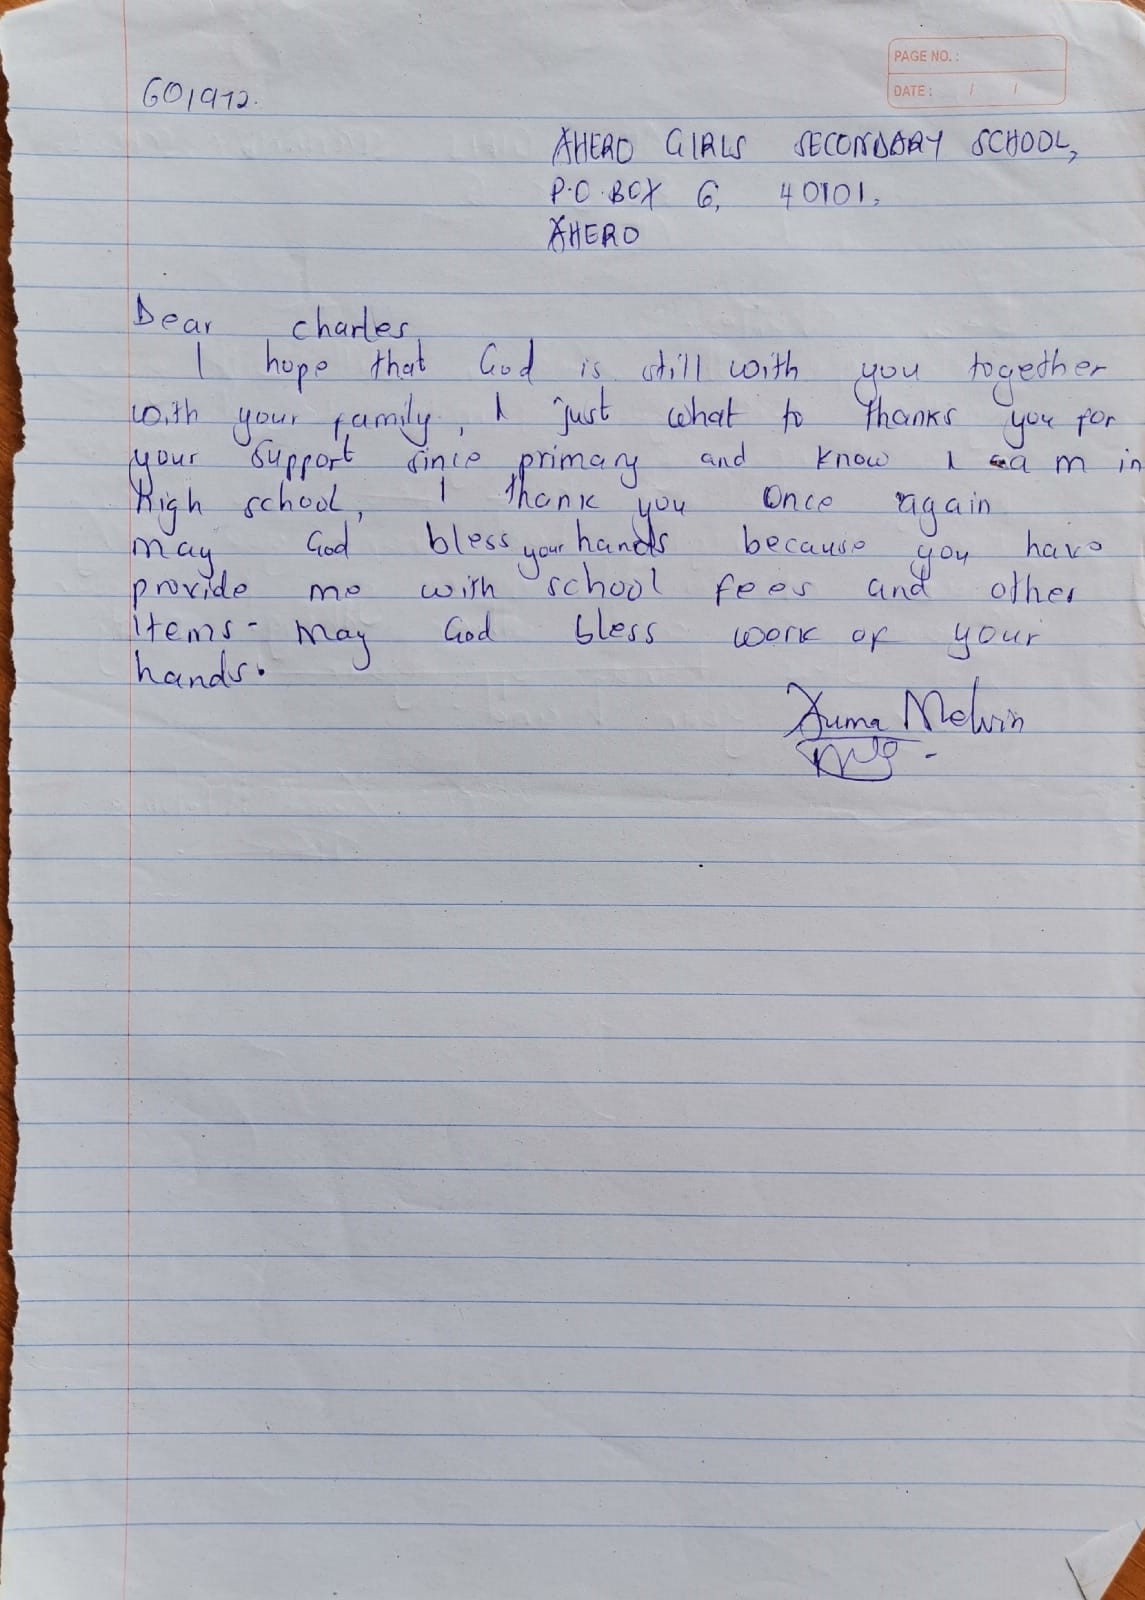 GO1972.
PAGE NO. :
DATE : / /
AHERO GIRLS SECONDARY SCHOOL,
P.O. BOX 6, 40101,
AHERO
Dear charles
I hope that God is still with you together
with your family, I just what to thanks you for
your support since primary and know I am in
high school, I thank you once again
may God bless your hands because you have
provide me with school fees and other
items - may God bless work of your
hands.
Auma Melvin